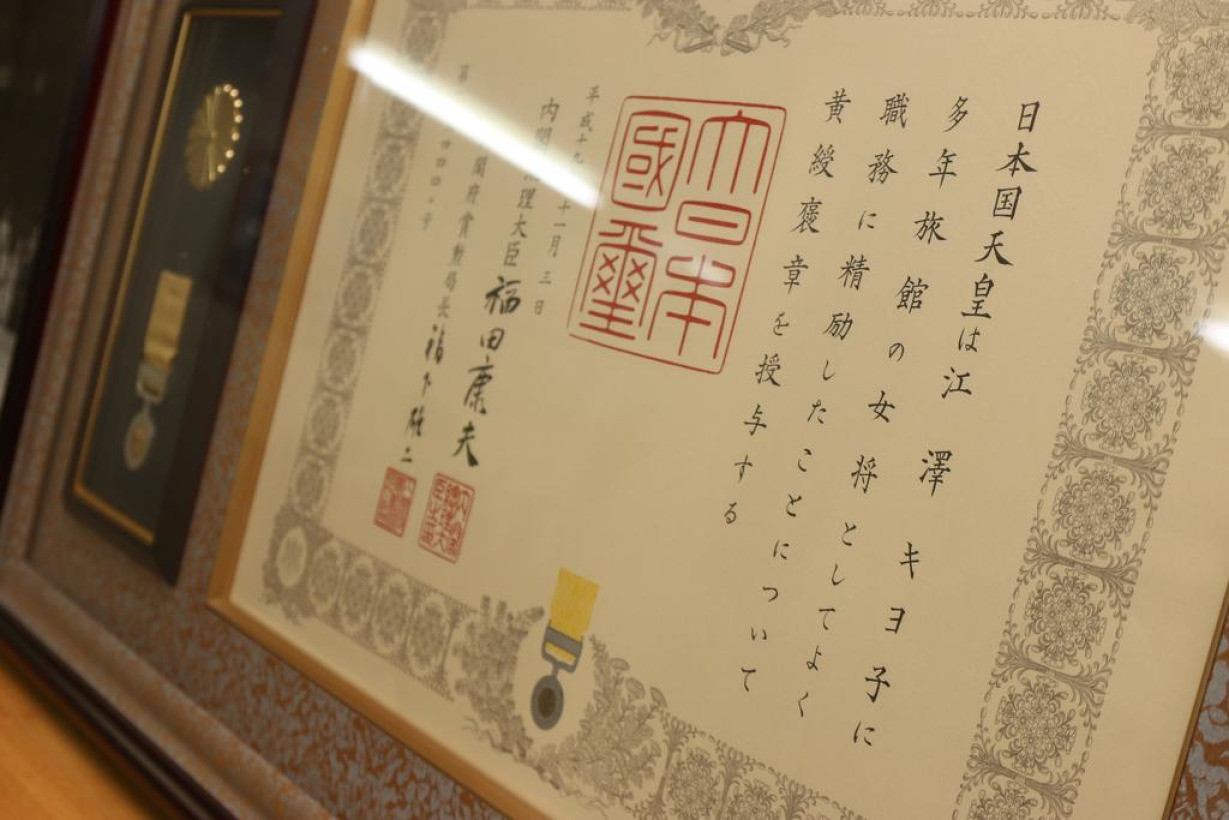 日本国天皇は江澤キヨ子に
多年旅館の女将としてよく
職務に精励したことについて
黄綬褒章を授与する
大日本國璽
平成十九十一月三日
内閣理大臣福田康夫
閣府賞勲局長福下雄二
第四四〇号